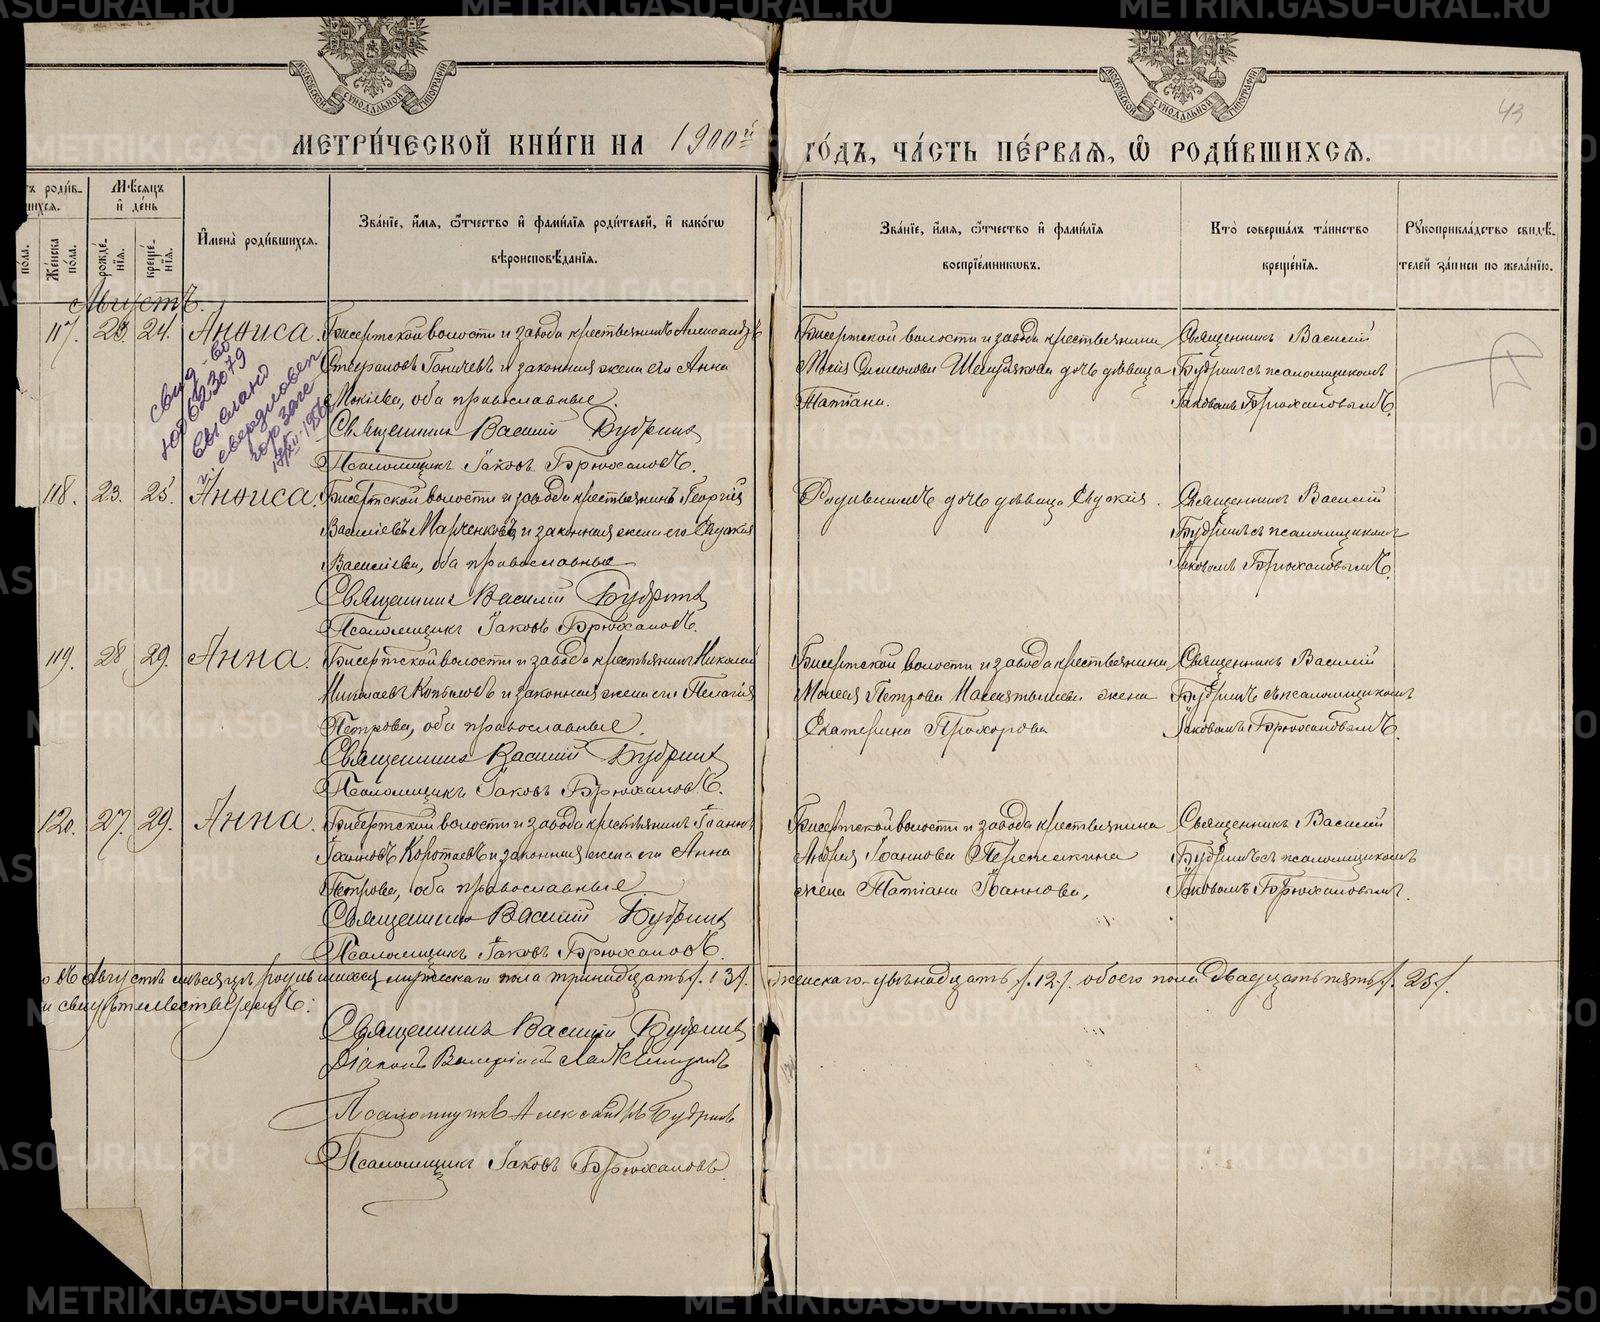 МЕТРИ́ЧЕСКОЙ КНИ́ГИ НА 1900й ГО́ДЪ, ЧА́СТЬ ПЕ́РВАЯ, Ѡ҆ РОДИ́ВШИХСЯ.
МОСКОВСКОЙ СѴНОДАЛЬНОЙ ТИПОГРАФІИ
МОСКОВСКОЙ СѴНОДАЛЬНОЙ ТИПОГРАФІИ
43
Мѣсяцъ и҆ де́нь
Же́нска по́ла.
рожде́нїя.
креще́нїя.
И҆мена̀ роди́вшихся.
Зва́нїе, и҆́мя, ѻ҆́тчество и҆ фами́лїя роди́телей, и҆ како́гѡ
вѣроисповѣ́данїя.
Зва́нїе, и҆́мя, ѻ҆́тчество и҆ фами́лїя
воспрїе́мникѡвъ.
Кто̀ соверша́лъ та́инство
креще́нїя.
Рꙋкоприкла́дство свидѣ́-
телей за́писи по жела́нїю.
Августъ.
117. 23. 24. Анѳиса. Бисертской волости и завода крестьянинъ Александръ
Стефановъ Ганичевъ и законная жена его Анна
Мокіева, оба православные.
Священникъ Василій Будринъ
Псаломщикъ Іаковъ Брюхановъ.
Бисертской волости и завода крестьянина
Мокія Симеонова Шемякова дочь дѣвица
Татіана.
Священникъ Василій
Будринъ съ псаломщикомъ
Іаковомъ Брюхановымъ.
свид-во
623079
выслано
свердловск
горзагс
118. 23. 25. Анѳиса. Бисертской волости и завода крестьянинъ Георгій
Василіевъ Марченковъ и законная жена его Евдокія
Василіева, оба православные
Священникъ Василій Будринъ
Псаломщикъ Іаковъ Брюхановъ.
Родившимъ дочь дѣвица Евдокія.
Священникъ Василій
Будринъ съ псаломщикомъ
Іаковомъ Брюхановымъ.
119. 28 29. Анна. Бисертской волости и завода крестьянинъ Николай
Николаевъ Копыловъ и законная жена его Пелагія
Петрова, оба православные.
Священникъ Василій Будринъ
Псаломщикъ Іаковъ Брюхановъ.
Бисертской волости и завода крестьянина
Моисея Петрова жена
Екатерина Прохорова
Священникъ Василій
Будринъ съ псаломщикомъ
Іаковомъ Брюхановымъ.
120. 27. 29. Анна. Бисертской волости и завода крестьянинъ Іоаннъ
Іоанновъ Коротаевъ и законная жена его Анна
Петрова, оба православные.
Священникъ Василій Будринъ
Псаломщикъ Іаковъ Брюхановъ.
Бисертской волости и завода крестьянина
Андрея Іоаннова Перемежина
жена Татіана Іоаннова,
Священникъ Василій
Будринъ съ псаломщикомъ
Іаковомъ Брюхановымъ.
въ Августѣ мѣсяцѣ родившихся мужескаго пола тринадцать /. 13/. женскаго двѣнадцать /.12./. обоего пола двадцать пять /. 25/.
и свидѣтельствуемъ:
Священникъ Василій Будринъ
Діаконъ Валеріанъ
Псаломщикъ Александръ Будринъ
Псаломщикъ Іаковъ Брюхановъ
METRIKI.GASO-URAL.RU